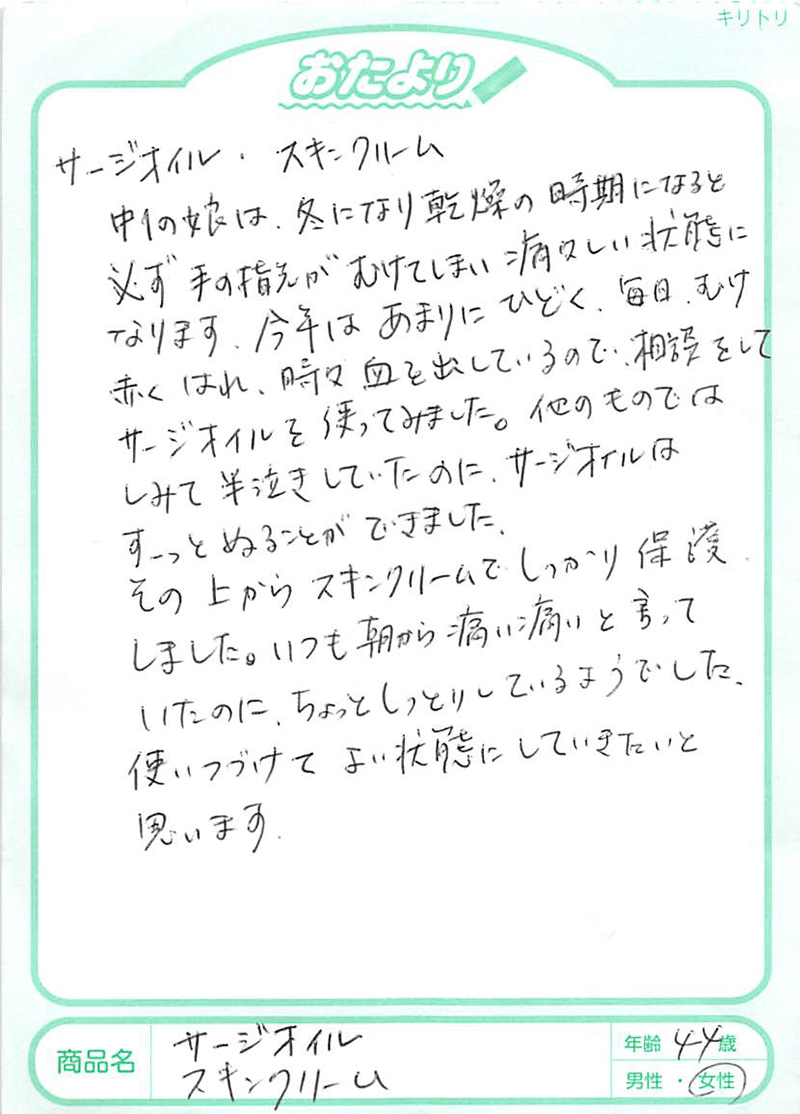 キリトリ
おたより
サージオイル・スキンクリーム
中1の娘は、冬になり乾燥の時期になると
必ず手の指先がむけてしまい痛々しい状態に
なります、今年はあまりにひどく、毎日、むけ
赤くはれ、時々血を出しているので、相談をして
サージオイルを使ってみました。他のものでは
しみて半泣きしていたのに、サージオイルは
すーっとぬることができました、
その上からスキンクリームでしっかり保護、
しました。いつも朝から痛い痛いと言って
いたのに、ちょっとしっとりしているようでした、
使いつづけてよい状態にしていきたいと
思います、
商品名
サージオイル
スキンクリーム
年齢 44歳
男性・女性